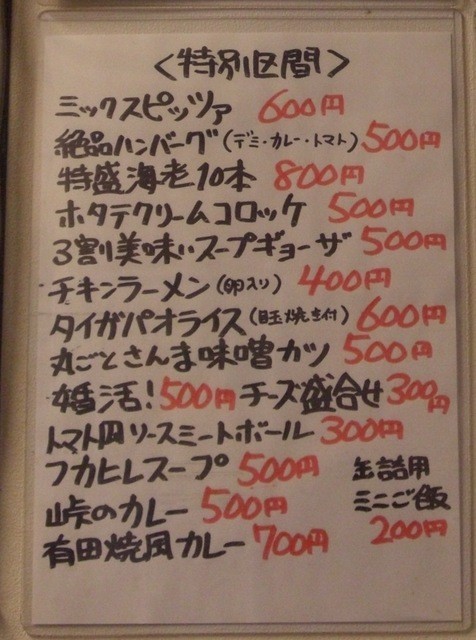 <特別区間>
ミックスピッツァ 600円
絶品ハンバーグ(デミ・カレー・トマト) 500円
特盛海老10本 800円
ホタテクリームコロッケ 500円
3割美味いスープギョーザ 500円
チキンラーメン(卵入り) 400円
タイガパオライス(目玉焼き付) 600円
丸ごとさんま味噌カツ 500円
婚活!500円 チーズ盛合せ 300円
トマト風ソースミートボール 300円
フカヒレスープ 500円
峠のカレー 500円
有田焼風カレー 700円
缶詰用
ミニご飯
200円